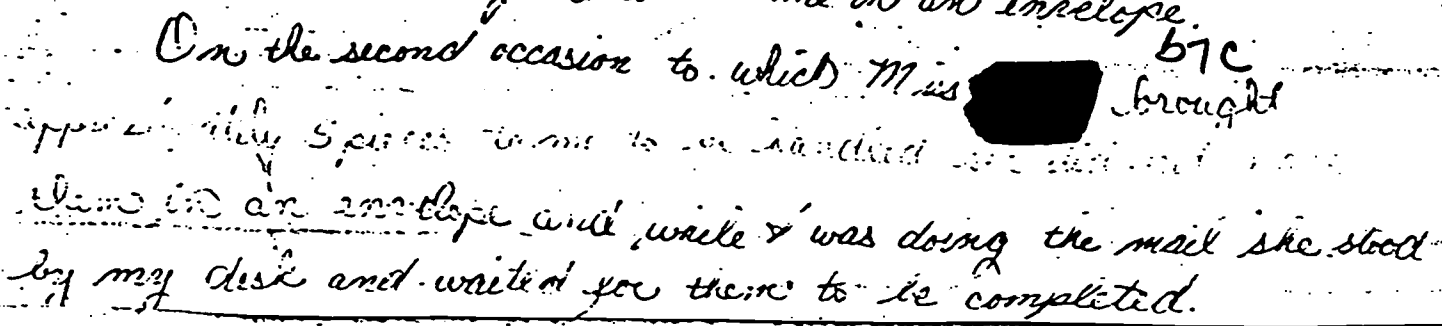 in an envelope.
b7C
On the second occasion to which Miss brought
5 pieces to me to be handled she did not have
them in an envelope and while I was doing the mail she stood
by my desk and waited for them to be completed.